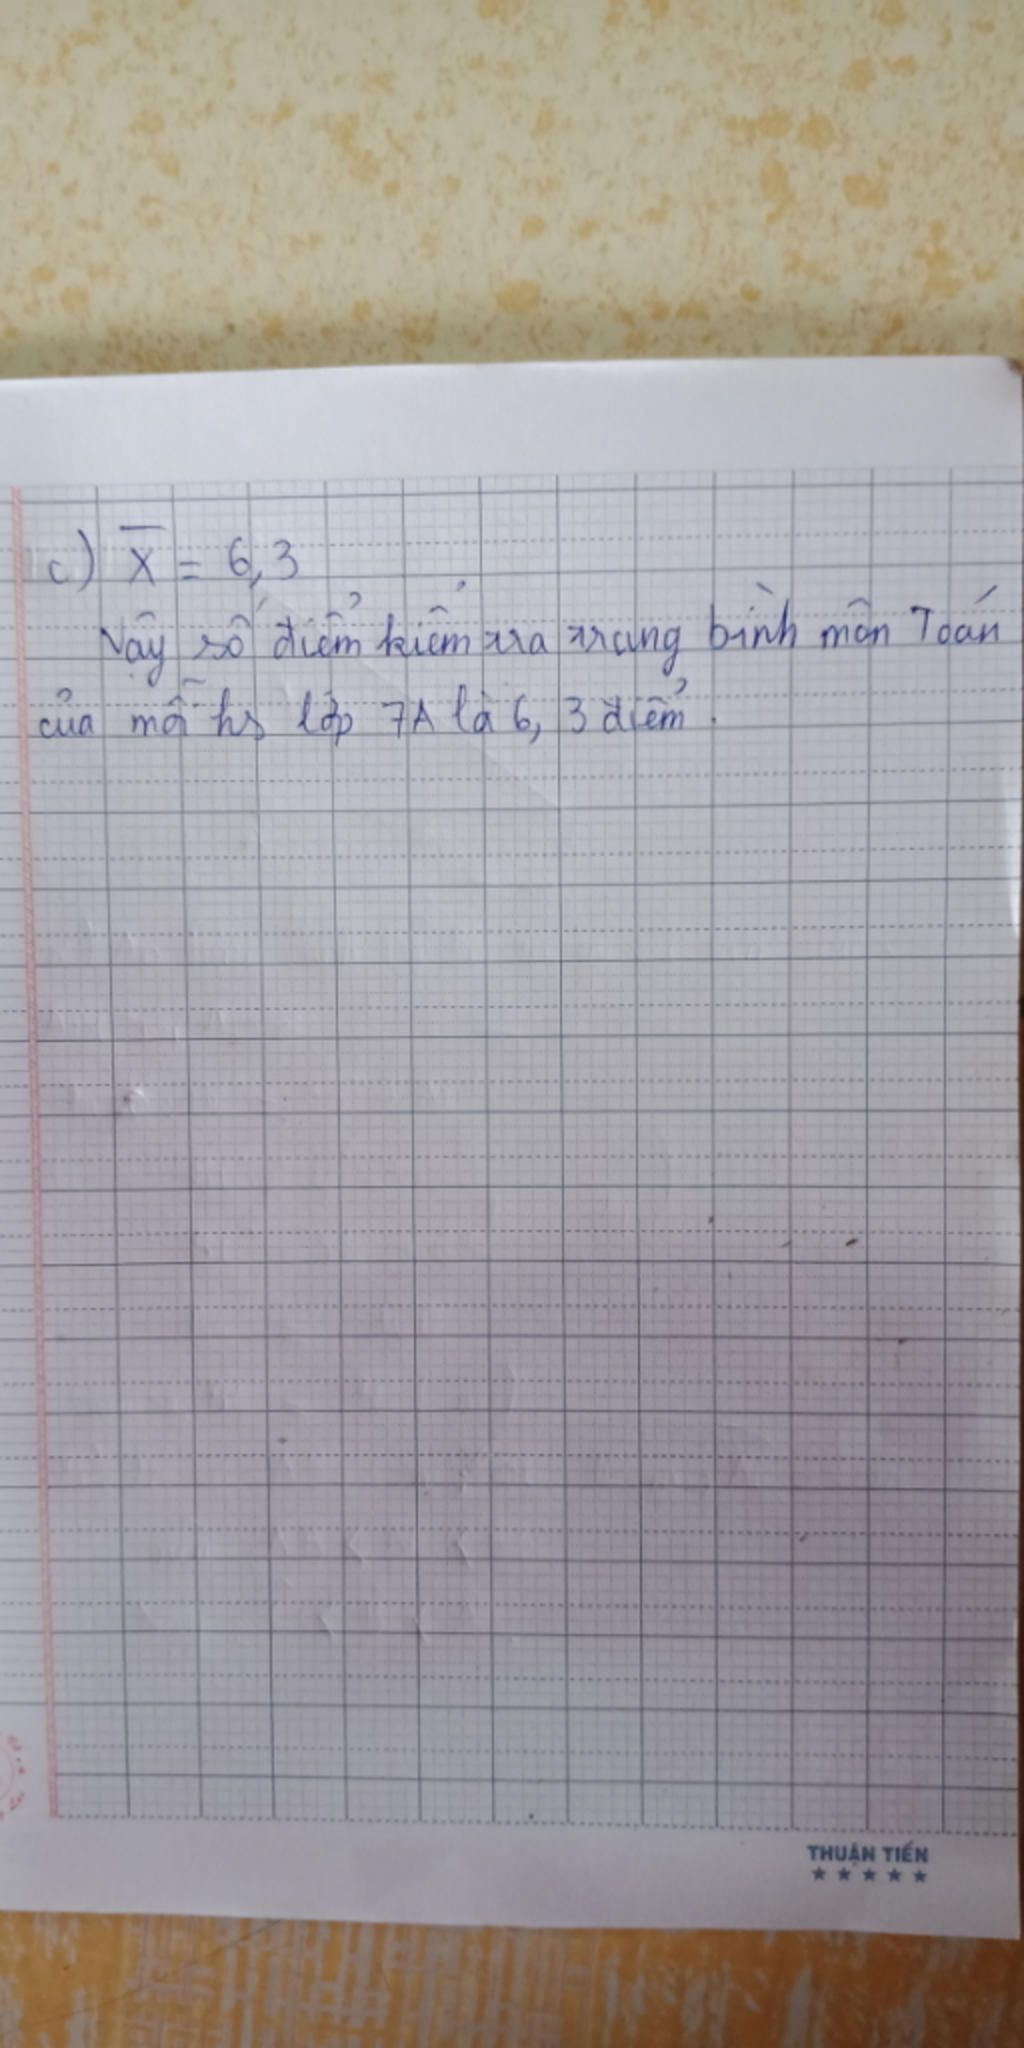 c) X̅ = 6,3
Vậy số điểm kiểm tra trung bình môn Toán
của mỗi hs lớp 7A là 6,3 điểm.
THUẬN TIẾN
★★★★★